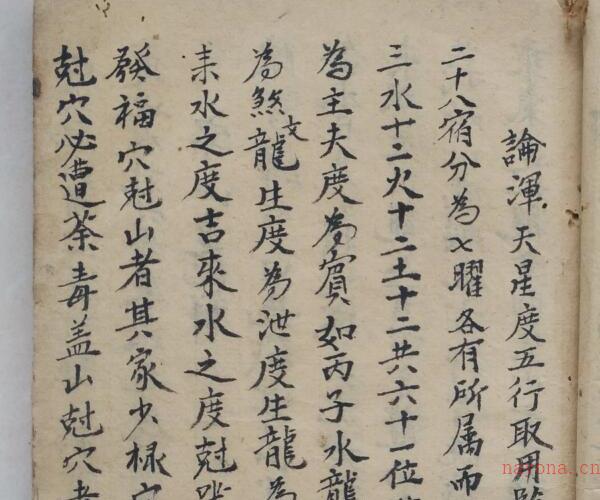 論渾天星度五行取用
二十八宿分為七曜各有所属而
三水十二火十二土十二共六十一位
為主夫度為賓如丙子水龍
為煞龍生度為泄度生龍為
文
来水之度吉來水之度尅
發福穴尅山者其家少祿
尅穴必遭荼毒盖山尅穴者
nayona.cn